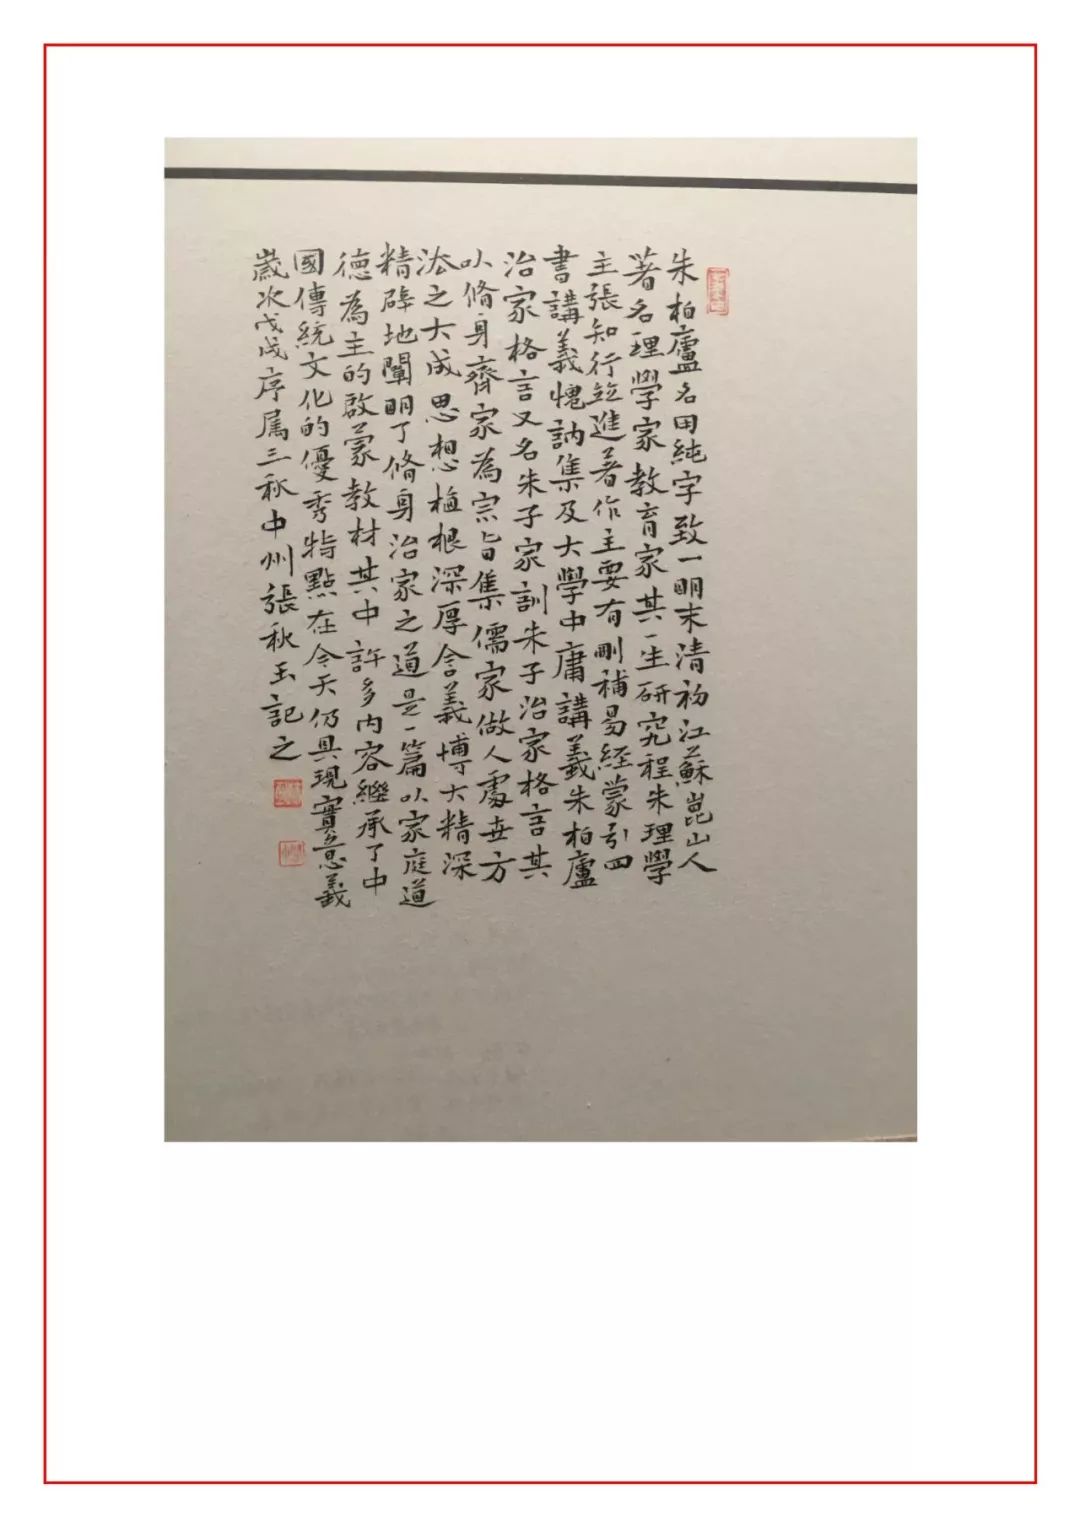 朱柏廬名用純字致一明末清初江蘇崑山人
著名理學家教育家其一生研究程朱理學
主張知行竝進著作主要有刪補易經蒙引四
書講義愧訥集及大學中庸講義朱柏廬
治家格言又名朱子家訓朱子治家格言其
以脩身齊家為宗旨集儒家做人處世方
法之大成思想植根深厚含義博大精深
精辟地闡明了脩身治家之道是一篇以家庭道
德為主的啟蒙教材其中許多內容繼承了中
國傳統文化的優秀特點在今天仍具現實意義
歲次戊戌序属三秋中州張秋玉記之